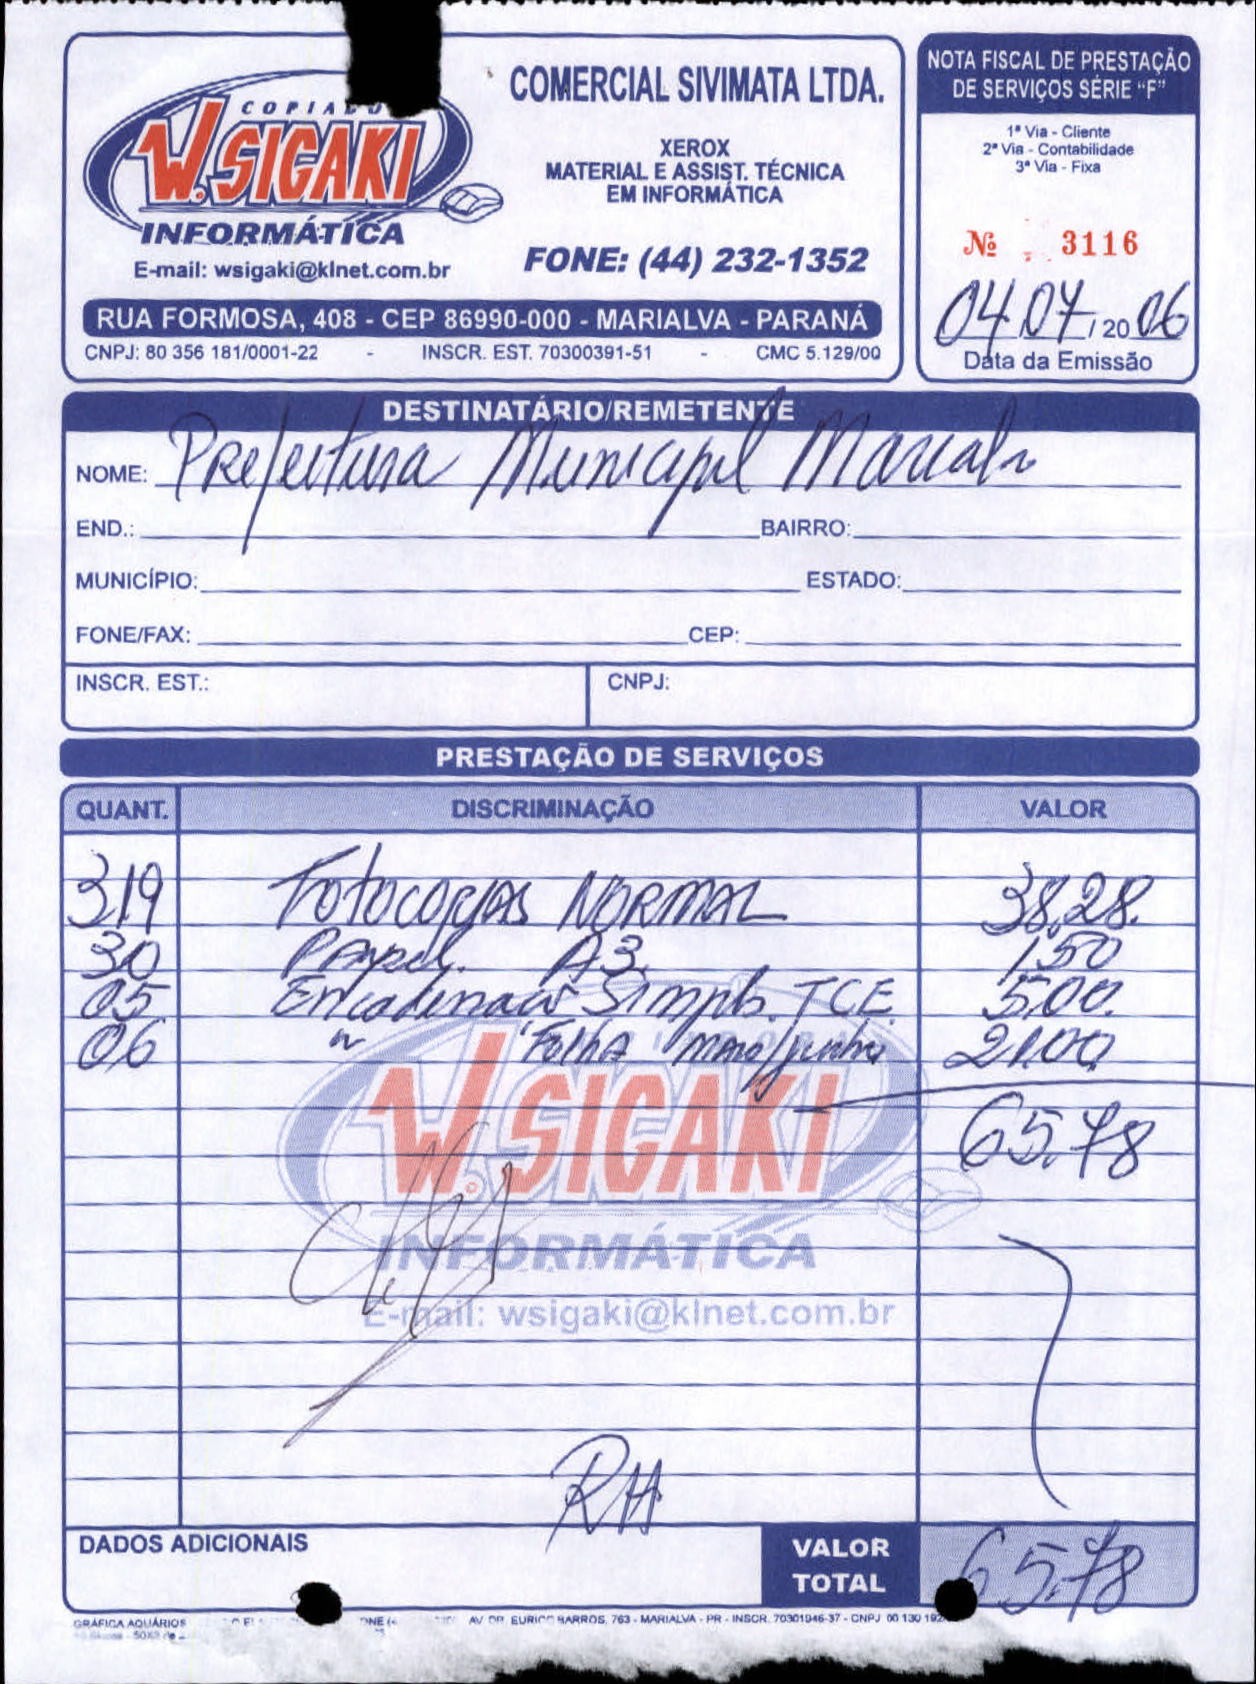 COPIADO
W.SIGAKI
INFORMÁTICA
E-mail: wsigaki@klnet.com.br
COMERCIAL SIVIMATA LTDA.
XEROX
MATERIAL E ASSIST. TÉCNICA
EM INFORMÁTICA
FONE: (44) 232-1352
RUA FORMOSA, 408 - CEP 86990-000 - MARIALVA - PARANÁ
CNPJ: 80 356 181/0001-22 - INSCR. EST. 70300391-51 - CMC 5.129/00
NOTA FISCAL DE PRESTAÇÃO
DE SERVIÇOS SÉRIE “F”
1ª Via - Cliente
2ª Via - Contabilidade
3ª Via - Fixa
Nº 3116
04/07/2006
Data da Emissão
DESTINATÁRIO/REMETENTE
NOME: Prefeitura Municipal
END.: BAIRRO:
MUNICÍPIO: ESTADO:
FONE/FAX: CEP:
INSCR. EST.: CNPJ:
PRESTAÇÃO DE SERVIÇOS
QUANT. DISCRIMINAÇÃO VALOR
319 Fotocopias NORMAL 38,28
30 Papel A3 1,50
05 Encadernação Simples TCE 5,00
06 " Folha maio/junho 21,00
65,78
W.SIGAKI
INFORMÁTICA
E-mail: wsigaki@klnet.com.br
RH
DADOS ADICIONAIS
VALOR TOTAL 65,78
GRÁFICA AQUÁRIOS AV DR. EURICO BARROS, 763 - MARIALVA - PR - INSCR. 70301946-37 - CNPJ 00 130